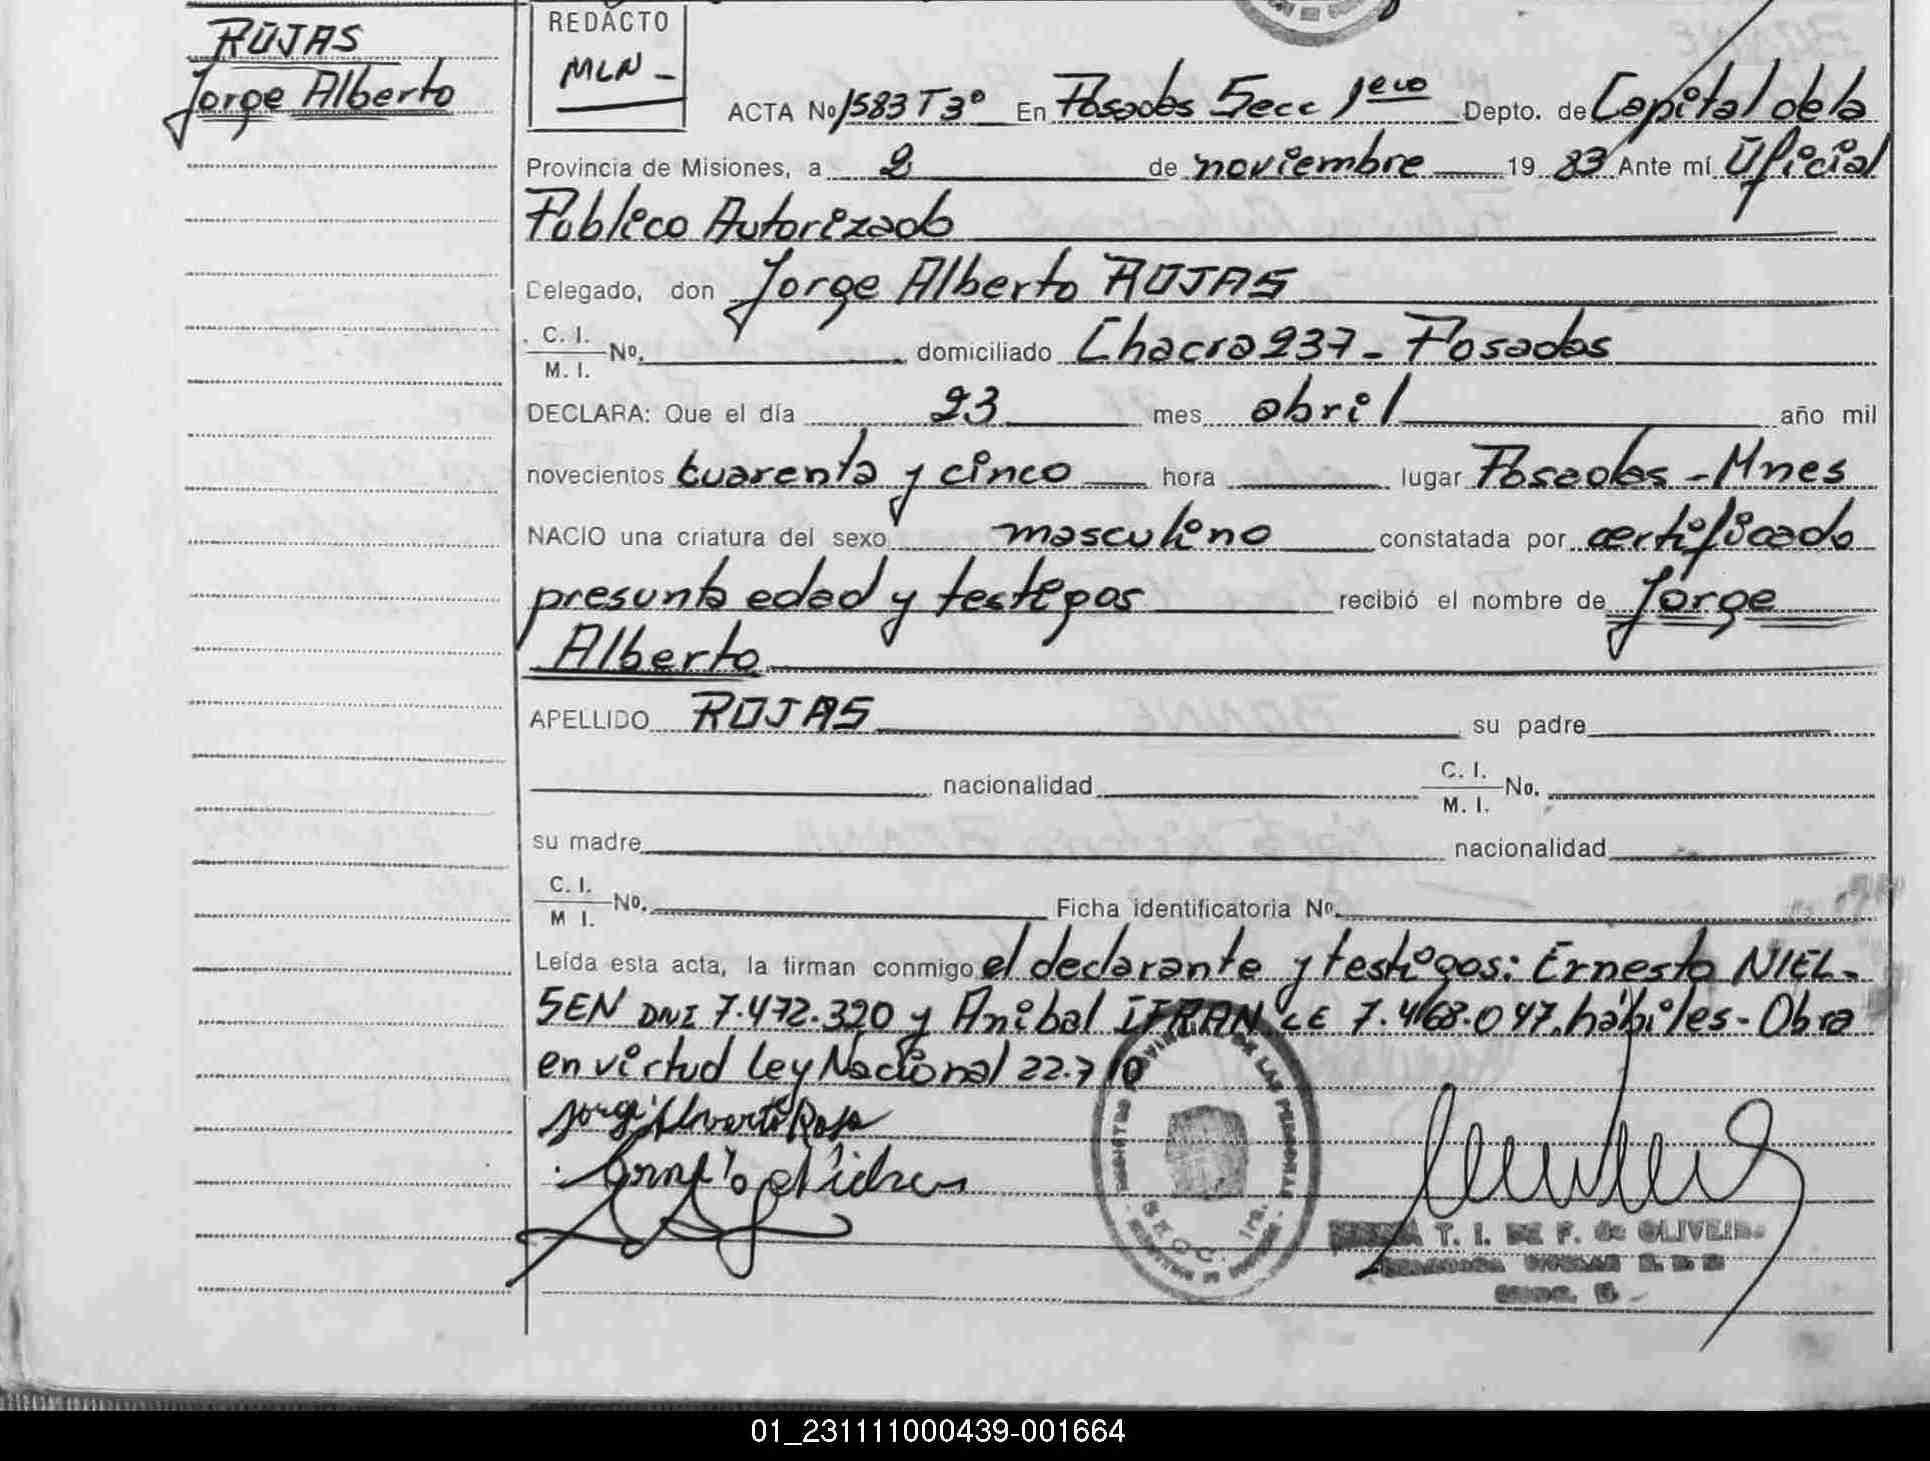 ROJAS
Jorge Alberto
REDACTO
MLN -
ACTA No 1583 T3° En Posadas Secc 1era Depto. de Capital de la
Provincia de Misiones, a 2 de noviembre 19 83 Ante mí Oficial
Público Autorizado
Delegado, don Jorge Alberto ROJAS
C. I.
M. I. No. domiciliado Chacra 237 - Posadas
DECLARA: Que el día 23 mes abril año mil
novecientos cuarenta y cinco hora lugar Posadas - Mnes
NACIO una criatura del sexo masculino constatada por certificado
presunta edad y testigos recibió el nombre de Jorge
Alberto
APELLIDO ROJAS su padre
nacionalidad C. I.
M. I. No.
su madre nacionalidad
C. I.
M I. No. Ficha identificatoria No.
Leída esta acta, la firman conmigo el declarante y testigos: Ernesto NIEL-
SEN DNI 7.472.320 y Anibal IFRAN LE 7.468.047. hábiles - Obra
en virtud Ley Nacional 22.710
Jorge Alverto Roja
T. I. DE F. de OLIVEIRA
01_231111000439-001664